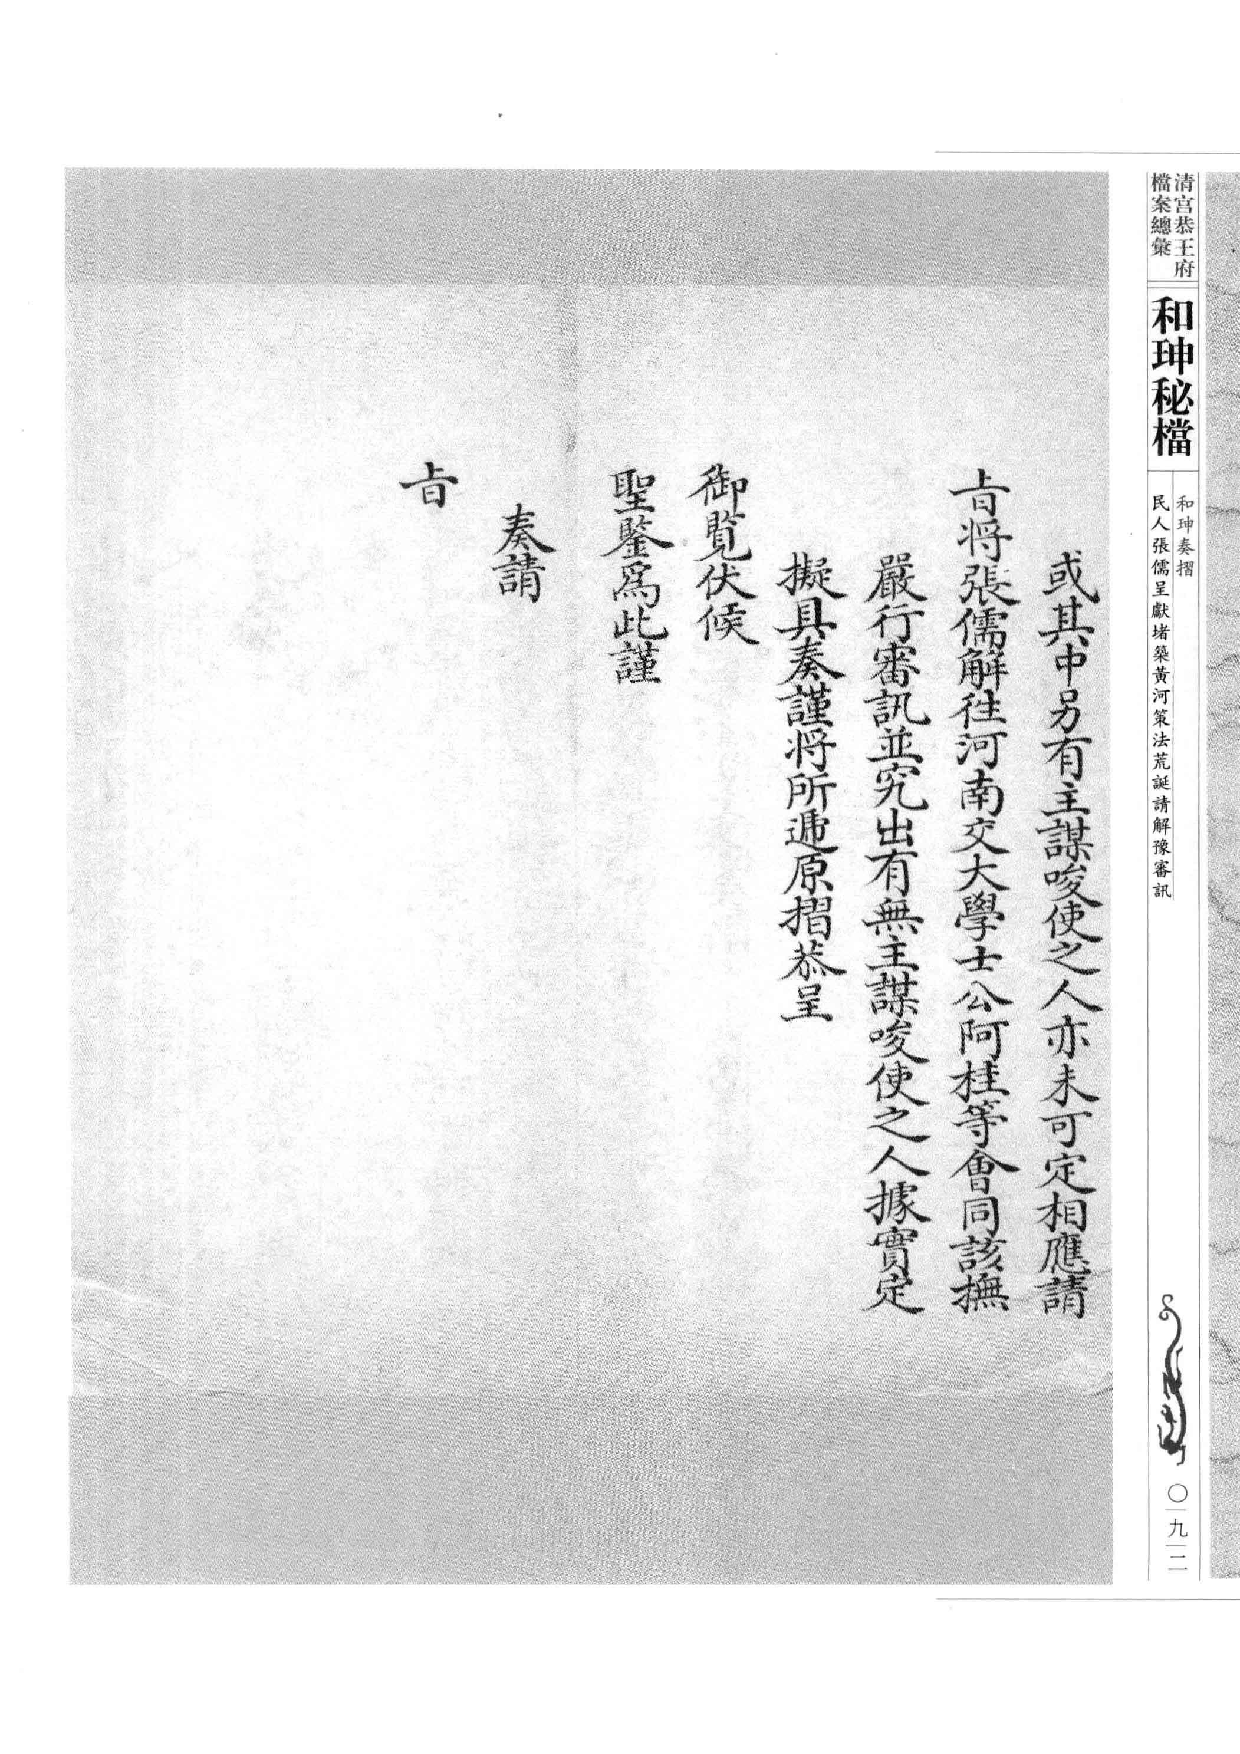 清宮恭王府
檔案總彙
和珅秘檔
和珅奏摺
民人張儒呈獻堵築黃河策法荒誕請解豫審訊
〇九二
或其中另有主謀唆使之人亦未可定相應請
旨将張儒解徃河南交大學士公阿桂等會同該撫
嚴行審訊並究出有無主謀唆使之人據實定
擬具奏謹将所遞原摺恭呈
御覽伏候
聖鑒爲此謹
奏請
旨